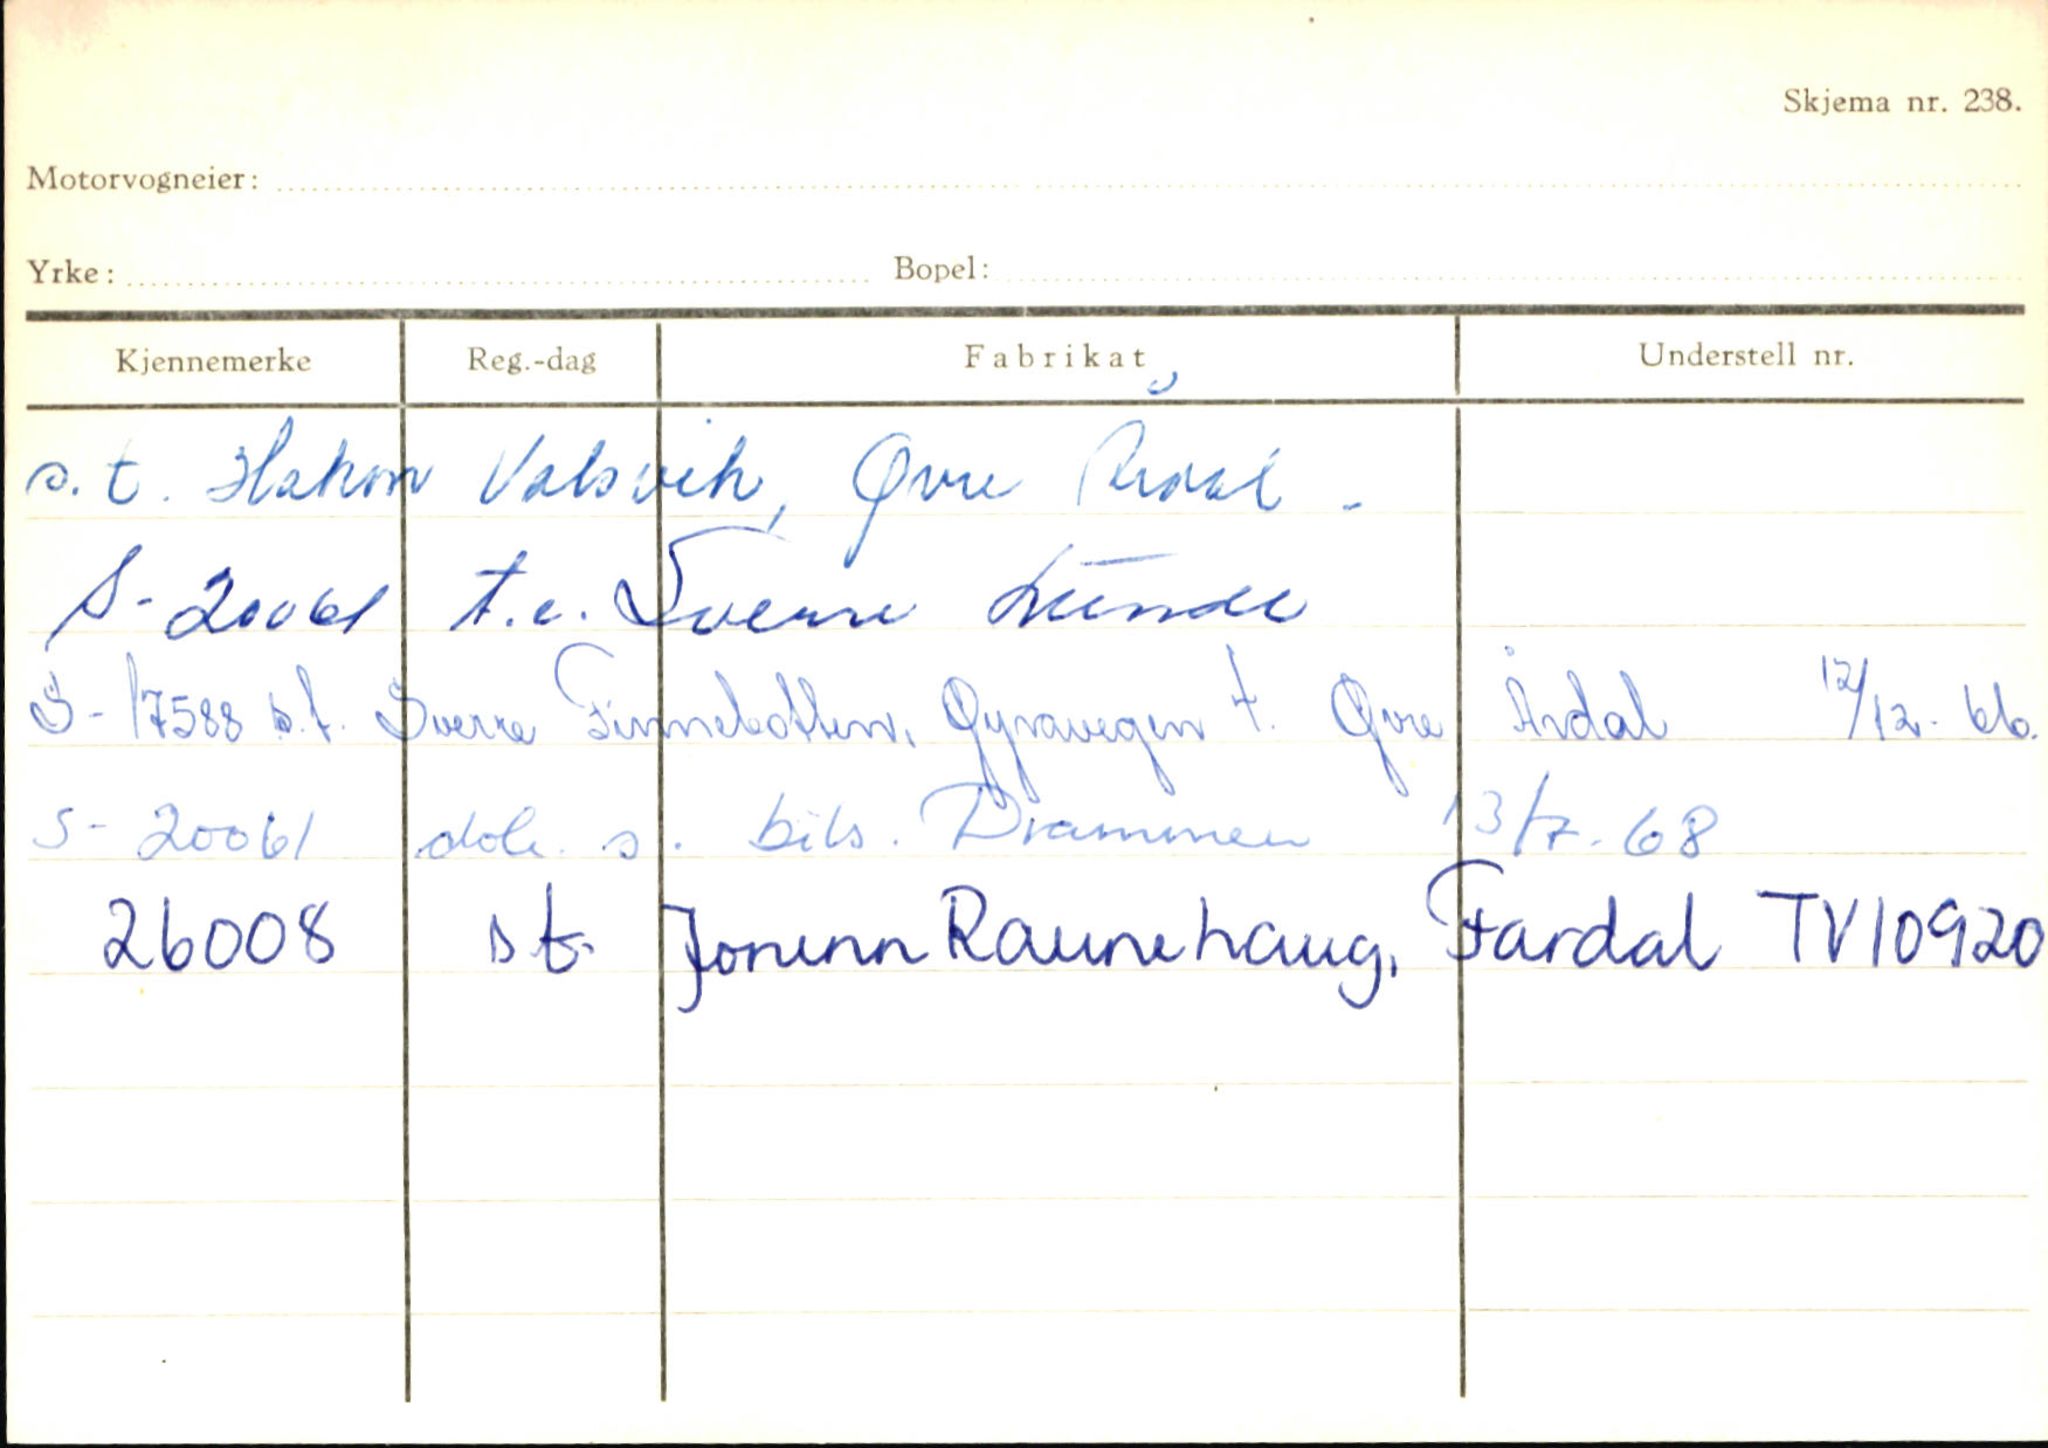 Skjema nr. 238.
Motorvogneier:
Yrke: Bopel:
Kjennemerke Reg.-dag Fabrikat Understell nr.
s.t. Håkon Valsvik, Øvre Årdal -
S-20061 t.e. Sverre Lunde
S-17588 s.t. Sverre Finnebotten, Øyravegen 7. Øvre Årdal 12/12-66.
S-20061 s. bils. Drammen 13/7-68
26008 st. Jonenn Raunehaug, Fardal TV10920